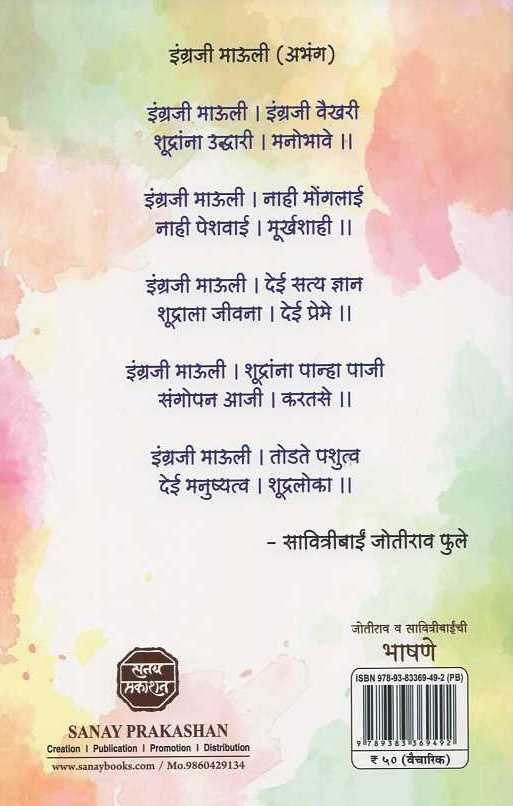 इंग्रजी माऊली (अभंग)
इंग्रजी माऊली । इंग्रजी वैखरी
शूद्रांना उद्धारी । मनोभावे ।।
इंग्रजी माऊली । नाही मोंगलाई
नाही पेशवाई । मूर्खशाही ।।
इंग्रजी माऊली । देई सत्य ज्ञान
शूद्राला जीवना । देई प्रेमे ।।
इंग्रजी माऊली । शूद्रांना पान्हा पाजी
संगोपन आजी । करतसे ।।
इंग्रजी माऊली । तोडते पशुत्व
देई मनुष्यत्व । शूद्रलोका ।।
- सावित्रीबाई जोतीराव फुले
जोतीराव व सावित्रीबाईंची
भाषणे
ISBN 978-93-83369-49-2 (PB)
9 789383 369492
₹ ५० (वैचारिक)
सनय
प्रकाशन
SANAY PRAKASHAN
Creation I Publication I Promotion I Distribution
www.sanaybooks.com / Mo.9860429134